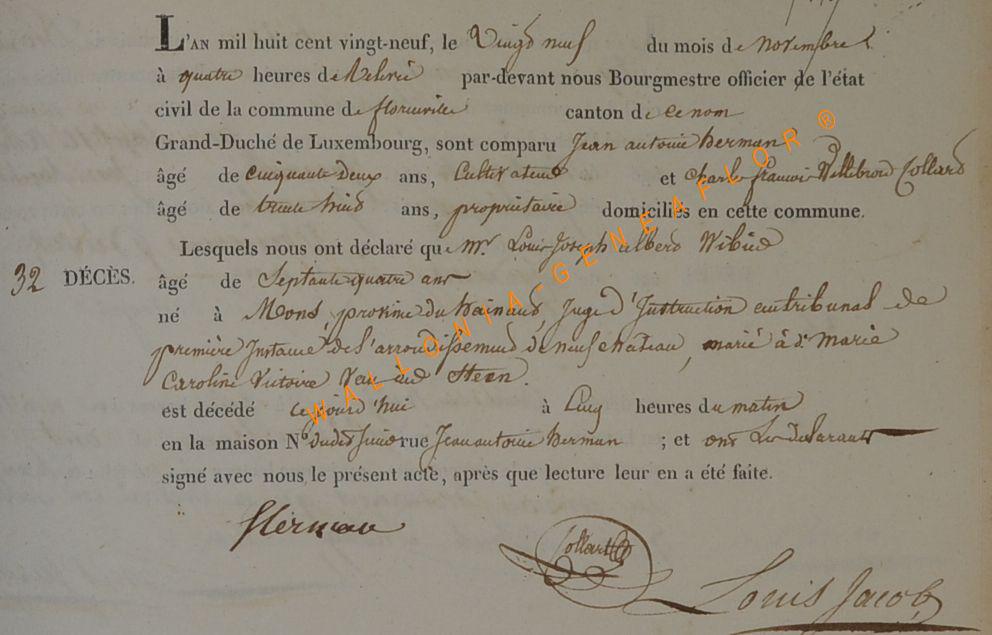 L'AN mil huit cent vingt-neuf, le Vingt neuf du mois de novembre
à quatre heures de Relevée par-devant nous Bourgmestre officier de l'état
civil de la commune de florenville canton de ce nom
Grand-Duché de Luxembourg, sont comparu Jean antoine herman
âgé de Cinquante Deux ans, Cultivateur et charles francois Willebrord Collard
âgé de trente huit ans, propriétaire domiciliés en cette commune.
Lesquels nous ont déclaré que Mr. Louis Joseph albert Wibin
32 DÉCÈS. âgé de Septante quatre ans
né à Mons, province du hainaut Juge d'Instruction au tribunal de
première Instance de l'arrondissement de neufchateau, marié à de Marie
Caroline Victoire Van der Steen.
est décédé cejourd'hui à Cinq heures du matin
en la maison No dudit Sieur rue Jean antoine herman ; et ont Les Déclarants
signé avec nous le présent acte, après que lecture leur en a été faite.
Herman
Collard
Louis Jacob
WALLONIA-GENEAFLOR ®